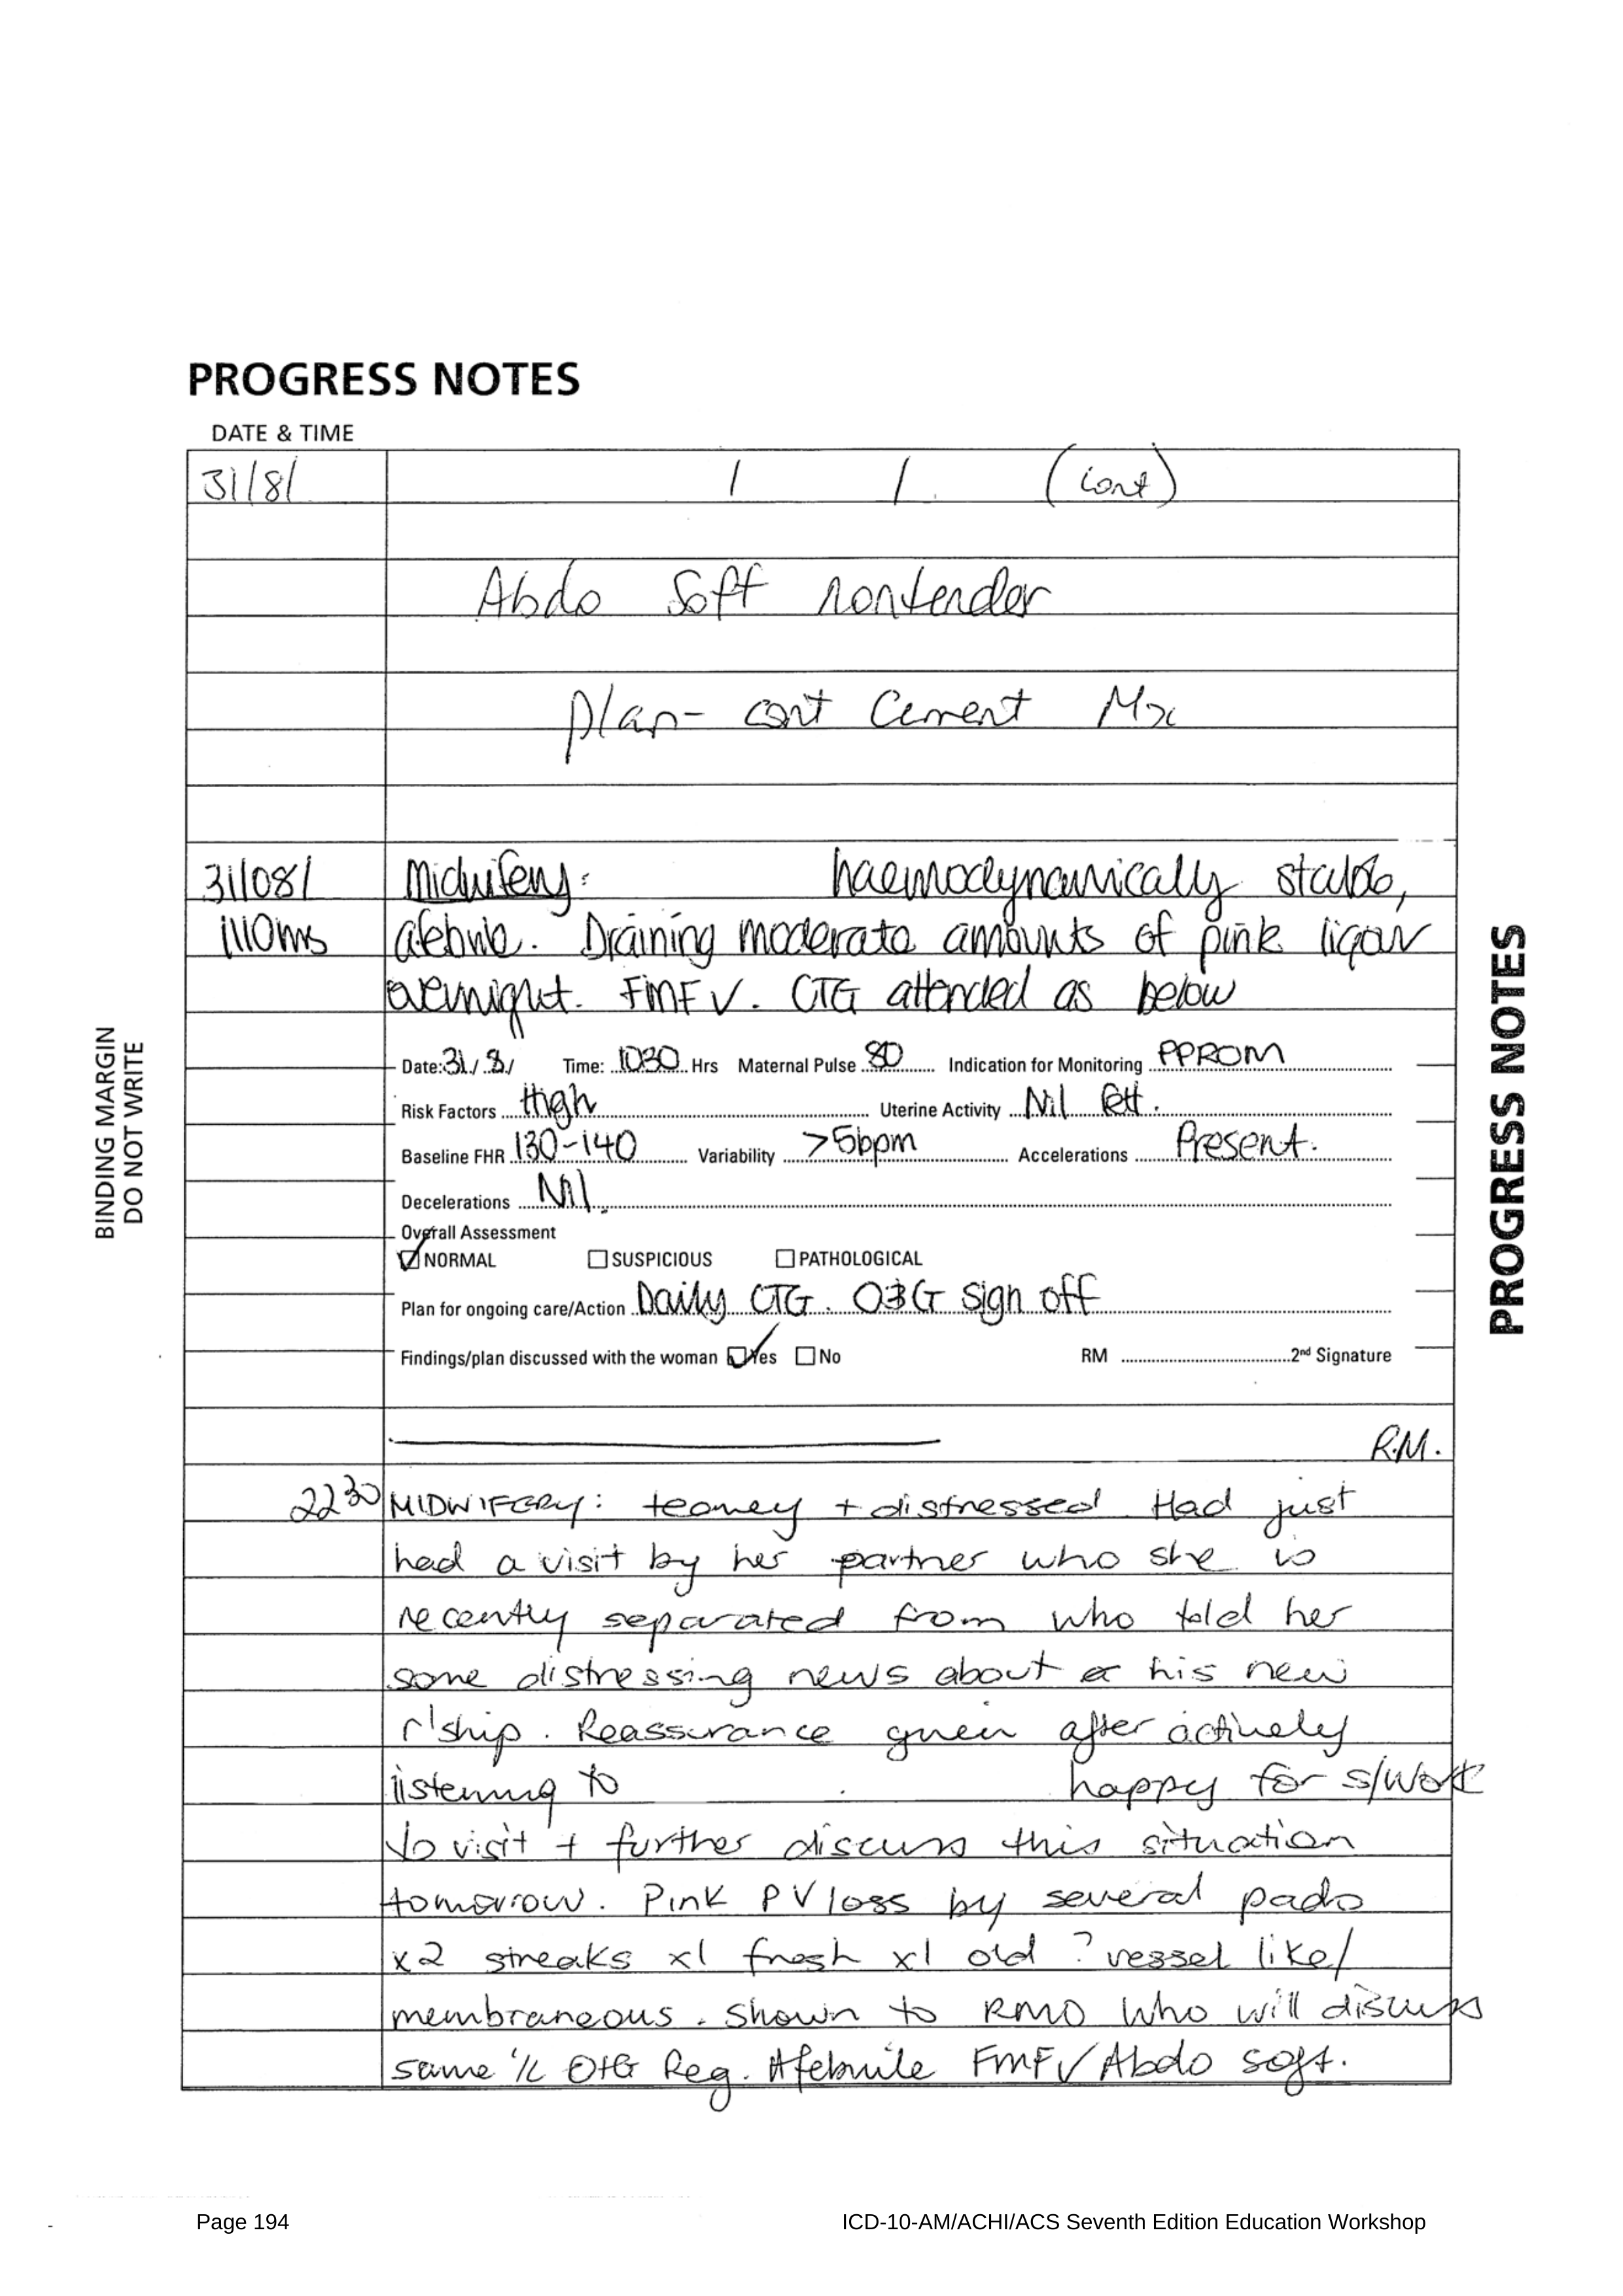 PROGRESS NOTES
DATE & TIME
31/8/ / / (cont)
Abdo Soft nontender
Plan- cont Current Mx
31/08/ Midwifery: haemodynamically stable,
1110hrs afebrile. Draining moderate amounts of pink liquor
overnight. FMF✓. CTG attended as below
Date: 31/8/ Time: 1030 Hrs Maternal Pulse 80 Indication for Monitoring PPROM
Risk Factors High Uterine Activity Nil
Baseline FHR 130-140 Variability >5bpm Accelerations Present.
Decelerations Nil
Overall Assessment
☑NORMAL ☐SUSPICIOUS ☐PATHOLOGICAL
Plan for ongoing care/Action Daily CTG. O&G sign off
Findings/plan discussed with the woman ☑Yes ☐No RM 2nd Signature
R.M.
2230 MIDWIFERY: teary + distressed. Had just
had a visit by her partner who she is
recently separated from who told her
some distressing news about his new
r'ship. Reassurance given after actively
listening to happy for s/work
to visit + further discuss this situation
tomorrow. Pink PV loss by several pads
x2 streaks x1 fresh x1 old ? vessel like/
membraneous. Shown to RMO who will discuss
same O+G Reg. Afebrile FMF✓ Abdo soft.
BINDING MARGIN
DO NOT WRITE
PROGRESS NOTES
Page 194 ICD-10-AM/ACHI/ACS Seventh Edition Education Workshop